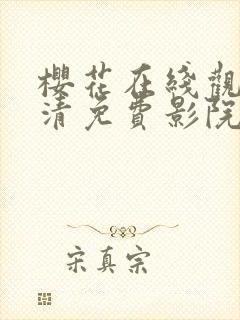 櫻花在綫觀
清免費影院
宋真宗